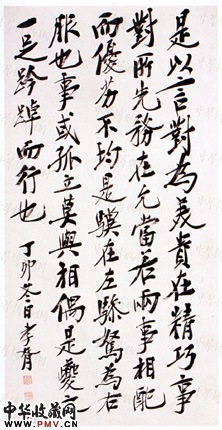 是以言對為美貴在精巧事
對所先務在允當若兩事相配
而優劣不均是驥在左驂駑為右
服也事或孤立莫與相偶是夔之
一足趻踔而行也
丁卯冬日孝胥
中华收藏网
www.PMV.CN